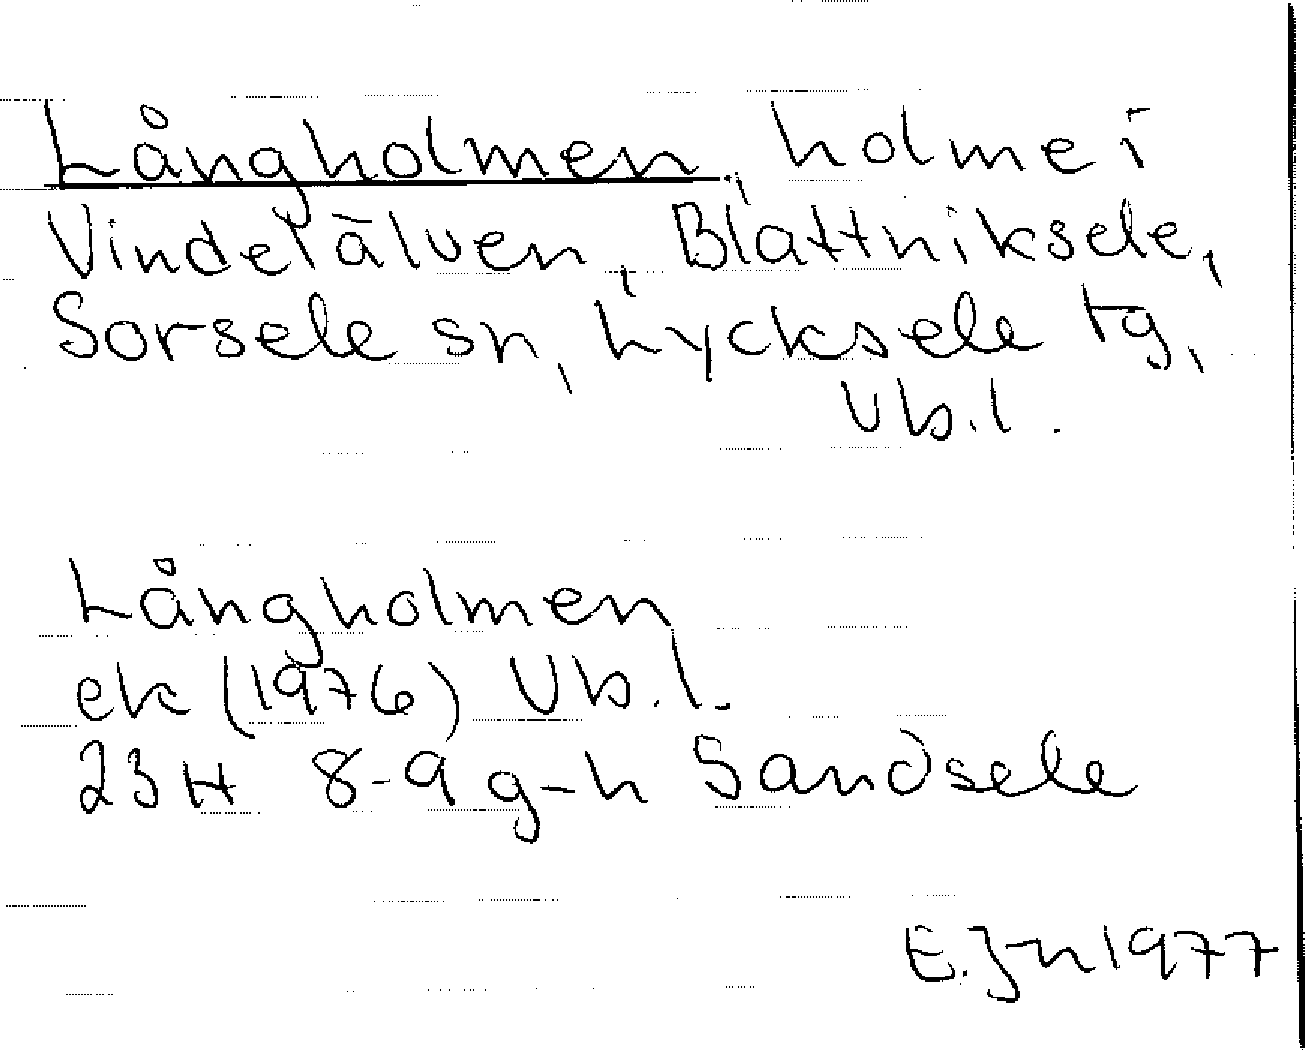 Långholmen, holme i
Vindelälven, Blattniksele,
Sorsele sn, Lycksele tg,
Vb.l.
Långholmen
ek (1976) Vb.l.
23H 8-9 g-h Sandsele
E.Jn 1977